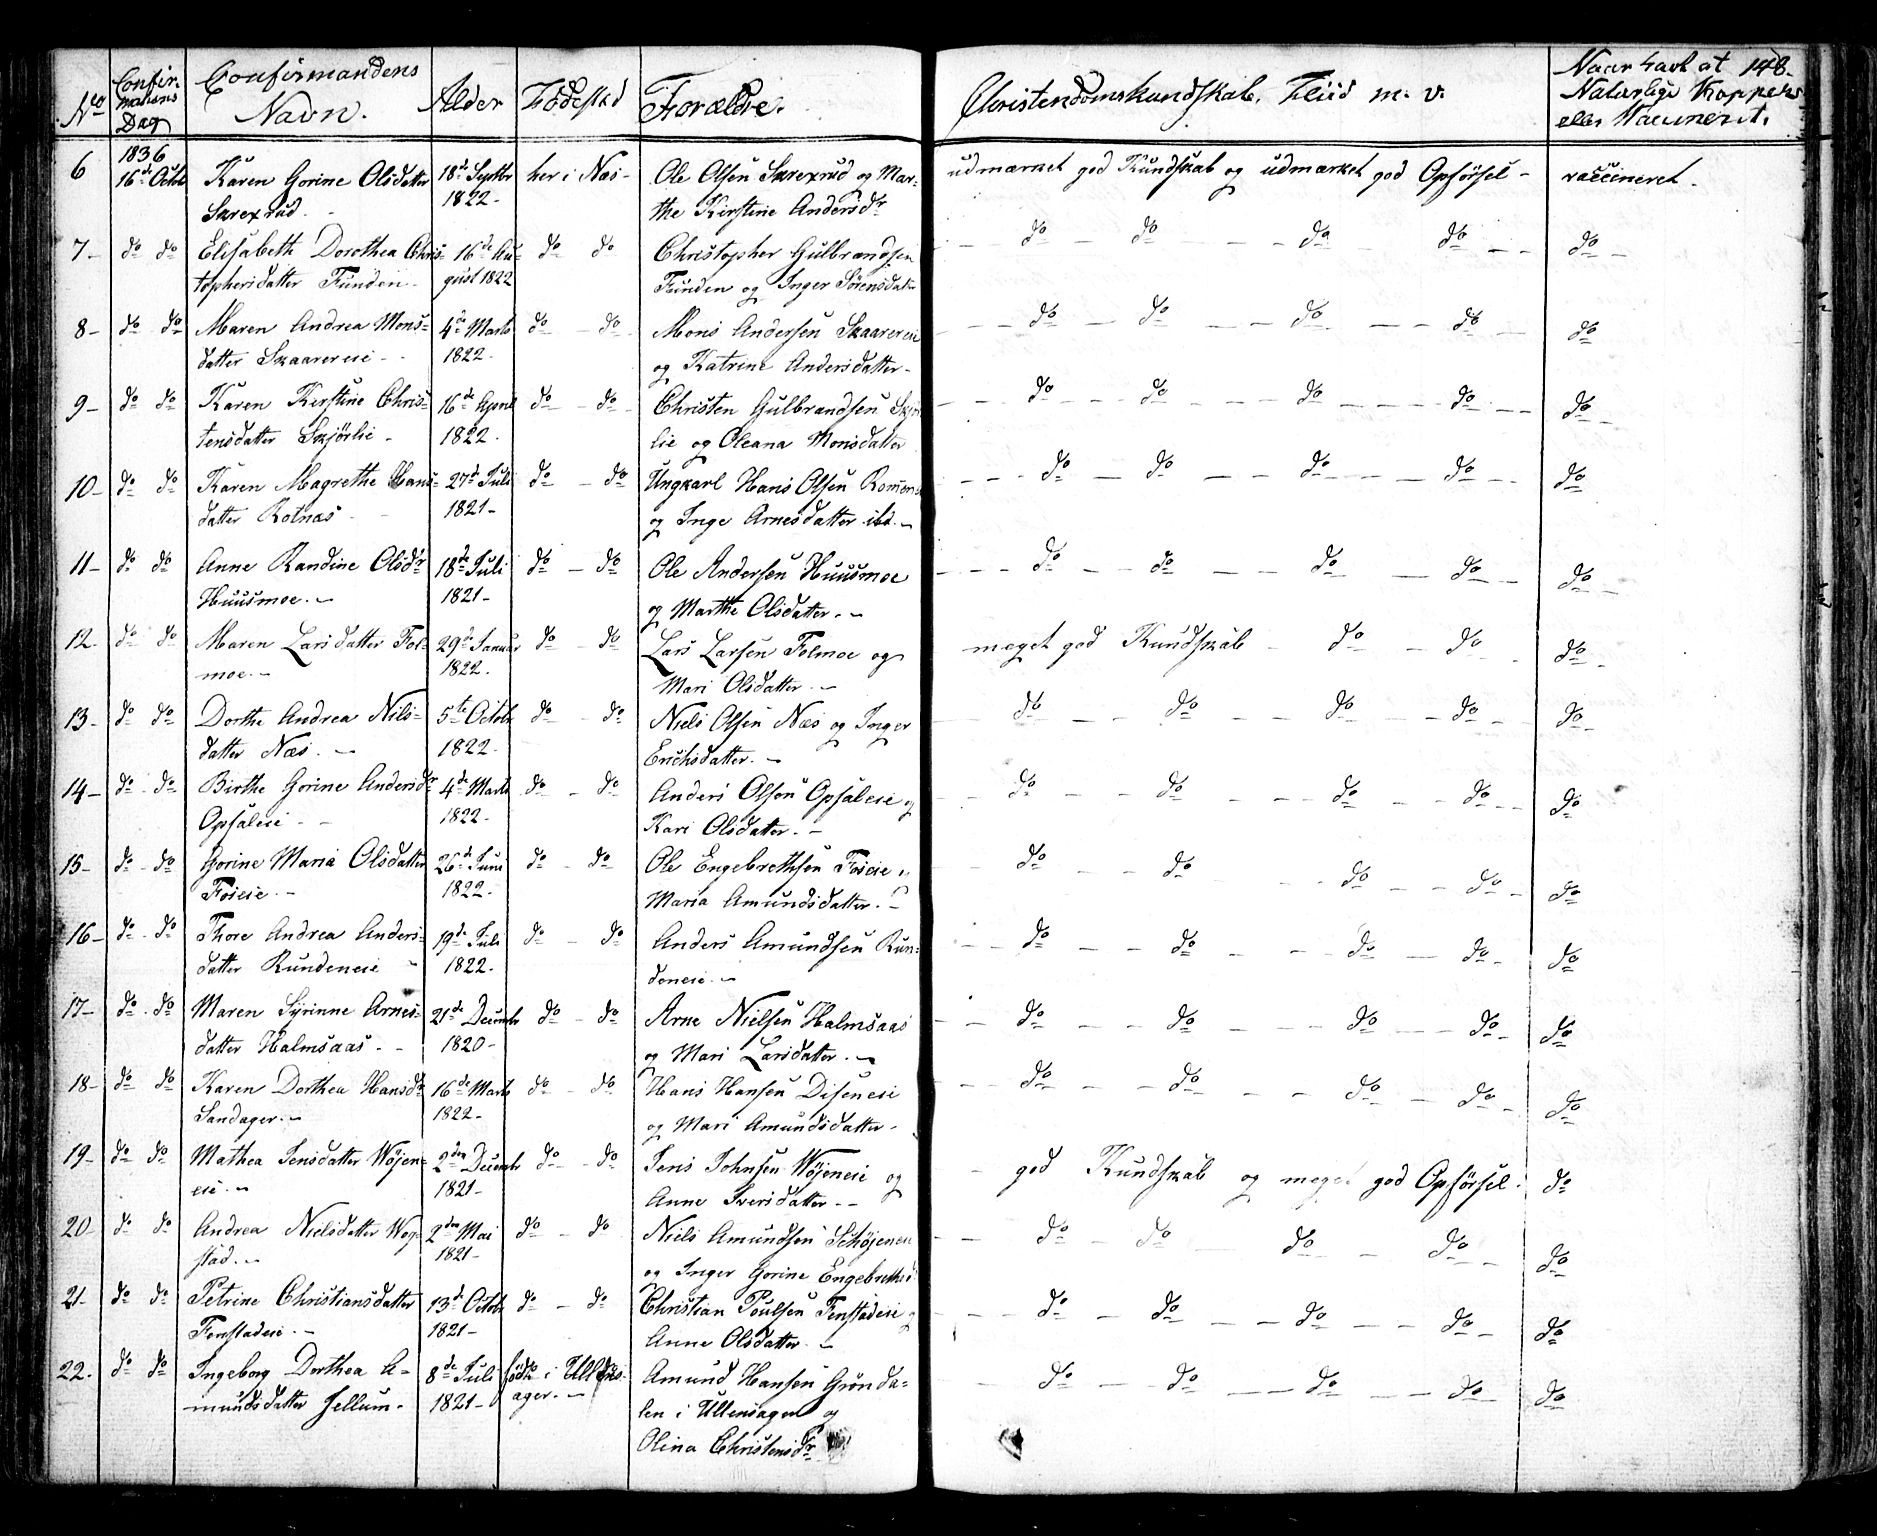 148.
No Confirmations Dag Confirmandens Navn. Alder Fødested Forældre. Christendomskundskab, Fliid m. v. Naar havt at Naturlige Kopper eller Vaccineret.
6 1836 16de Octob Karen Gorine Olsdatter 18de Septbr her i Næs - Ole Olsen Skrexrud og Mar- udmærket god Kundskab og udmærket god Opførsel - vaccineret.
Skrexrud - 1822 - the Kirstine Andersdr
7 - do do Elisabeth Dorothea Chris- 16de Au- do do Christopher Gulbrandsen - do - do - - do - do - - do -
tophersdatter Funden - gust 1822 Funden og Inger Sørensdatter
8 - do do Maren Andrea Mons- 4de Marts do - do - Mons Andersen Skaarereie - - do - do - - do - - do - do
datter Skaarereie - 1822 - og Katrine Andersdatter -
9 - do do Karen Kirstine Chris- 16de April do - do - Christen Gulbrandsen - - do - do - - do - - - do - - do
tensdatter Skjørlie - 1822 - lie og Oleana Monsdatter
10 - do do Karen Magrethe Hans- 27de Juli do - do Ungkarl Hans Olsen - - - do - do - - do - - do - - do
datter Rotnæs - 1821 - og Inge Arnesdatter ibd. -
11 - do do Anne Randine Olsdr 18de Juli do - do Ole Andersen Huusmoe - - - do - - do - - do - do - do -
Huusmoe. - 1821 - og Marthe Olsdatter. -
12. do do Maren Larsdatter Fol- 29de Januar do - do Lars Larsen Folmoe og meget god Kundskab - do - do - do -
moe. - 1822. Mari Olsdatter. -
13 - do do Dorthe Andrea Nils- 5te Octobr do - do Niels Olsen Næs og Inger do - - do - - do - do - do -
datter Næs. - 1822 - Erichsdatter. -
14 - do - do Birthe Gorine Andersdr 4de Marts do - do Anders Olsen Opsaleie og - do - - do - - - do - - do - - do
Opsaleie - 1822 - Kari Olsdatter. -
15 - do - do Gorine Maria Olsdatter 26de Juni do - do Ole Engebrethsen Foseie - do - do - - do - - do - do
Foseie. - 1822 - Maria Amundsdatter. -
16 - do - do Thore Andrea Anders- 19de Juli do - do Anders Amundsen Run- - - do - - do - - do - do - do
datter Rundeneie - 1822 - deneie. -
17 - do - do Maren Syrinne Arnes- 21de Decembr do - do Arne Nielsen Halmsaas - - do - - do - - do - - do - do
datter Halmsaas - 1820 - og Mari Larsdatter. -
18 - do do Karen Dorthea Hansdr 16de Marts do - do Hans Hansen Diseneie - - do - - do - - do - do - do
Sandager. - 1822 - og Mari Amundsdatter -
19 - do do Mathea Jensdatter Wøjen- 2den Decembr do - do Jens Johnsen Wøjeneie og - god Kundskab og meget god Opførsel. do
eie. - 1821 - Anne Iversdatter - -
20 do do Andrea Nielsdatter 2den Mai do - do Niels Amundsen - - do - do do - do - do
stad. - 1821 - og Inger Gorine
21 - do do Petrine Christiansdatter 13de Octobr do - do Christian Poulsen Fenstadeie og - - do - do - do - do - do
Fenstadeie. - 1821 - Anne Olsdatter. -
22. do do Ingeborg Dorthea A- 8de Juli født i Ullens- Amund Hansen Grønda- - do - do - - do - - do - do
mundsdatter Jellum. 1821 - ager. - len i Ullensager og
Olina Christensdr